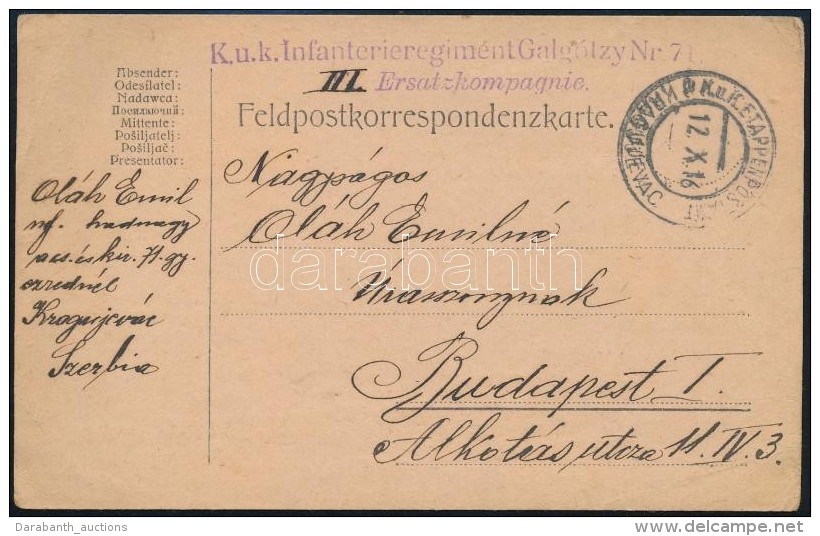 K.u.k. Infanterieregiment Galgótzy Nr 71
III. Ersatzkompagnie.
Feldpostkorrespondenzkarte.
Absender:
Odesílatel:
Nadawca:
Посилаючий:
Mittente:
Pošiljatelj:
Pošiljač:
Presentator:
K.u.K. ETAPPENPOSTAMT
KRAGUJEVAC
12. X. 16
Oláh Emil
nf. hadnagy
a cs. és kir. 71. gy.
ezrednél
Kragujevác
Szerbia
Nagyságos
Oláh Emilné
Úrasszonynak
Budapest I.
Alkotás utcza 11. IV. 3.
darabanth
Darabanth_auctions
www.delcampe.net